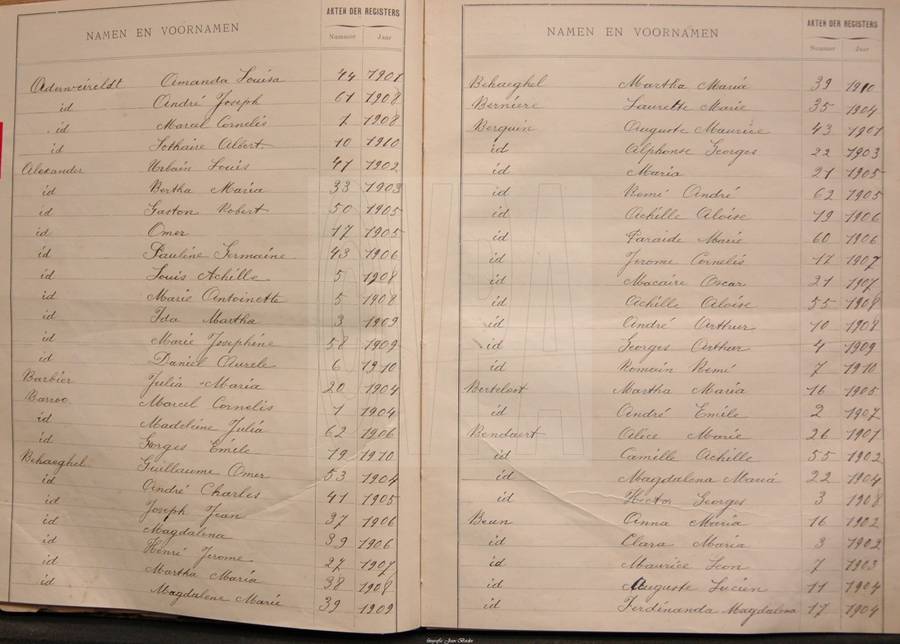 NAMEN EN VOORNAMEN AKTEN DER REGISTERS
Nummer Jaar
Aderweireldt Amanda Louisa 44 1901
id André Joseph 61 1908
id Marcel Cornelis 1 1908
id Lothaire Albert 10 1910
Alexander Urbain Louis 47 1902
id Bertha Maria 33 1903
id Gaston Robert 50 1905
id Omer 17 1905
id Pauline Germaine 43 1906
id Louis Achille 5 1908
id Marie Antoinette 5 1908
id Ida Martha 3 1909
id Marie Josephine 58 1909
id Daniel Aurele 6 1910
Barbier Julia Maria 20 1904
Barroo Marcel Cornelis 1 1904
id Madeleine Julia 62 1906
id Gorges Emile 19 1910
Behaeghel Guillaume Omer 53 1904
id André Charles 41 1905
id Joseph Jean 37 1906
id Magdalena 39 1906
id Henri Jerome 27 1907
id Martha Maria 38 1908
id Magdalene Marie 39 1909
NAMEN EN VOORNAMEN AKTEN DER REGISTERS
Nummer Jaar
Behaeghel Martha Maria 39 1910
Berniere Laurette Marie 35 1904
Berquin Auguste Maurice 43 1901
id Alphonse Georges 22 1903
id Maria 21 1905
id Remé André 62 1905
id Achille Aloise 19 1906
id Paraide Marie 60 1906
id Jerome Cornelis 17 1907
id Macaire Oscar 21 1907
id Achille Aloise 55 1908
id André Arthur 10 1908
id Georges Arthur 4 1909
id Romain Remé 7 1910
Bertelost Martha Maria 16 1905
id André Emile 2 1907
Bendaert Alice Marie 26 1901
id Camille Achille 55 1902
id Magdalena Maria 22 1904
id Hector Georges 3 1908
Beun Anna Maria 16 1902
id Clara Maria 3 1902
id Maurice Leon 7 1903
id Auguste Lucien 11 1904
id Ferdinanda Magdalena 17 1904